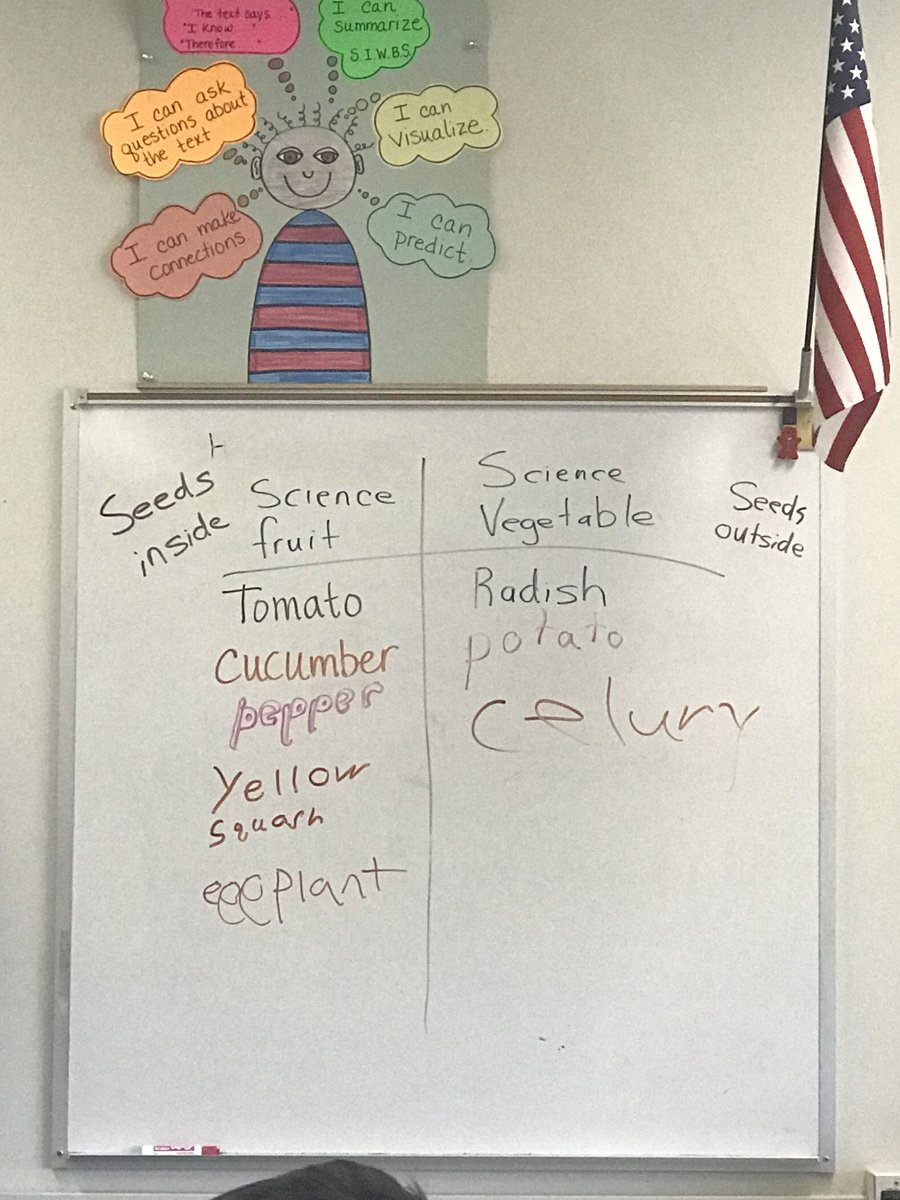 The text says
"I know "
"Therefore "
I can
Summarize
S.I.W.B.S.
I can ask
questions about
the text
I can
Visualize.
I can make
connections
I can
predict.
Seeds
inside
Science
fruit
Science
Vegetable
Seeds
outside
Tomato
Cucumber
pepper
Yellow
Squash
eggplant
Radish
potato
celury